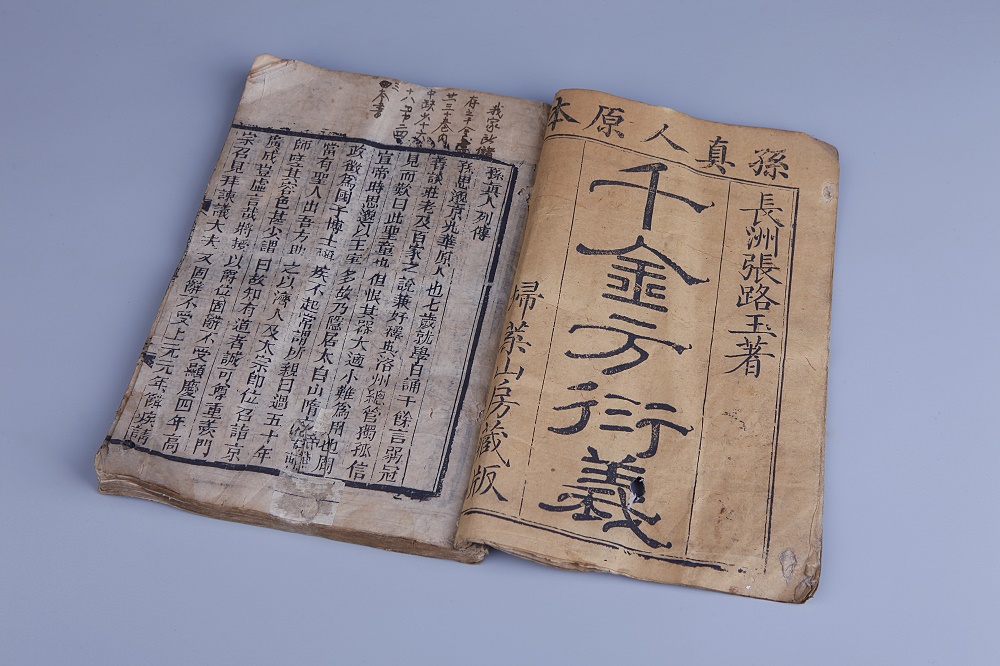 孫真人原本
長洲張路玉著
千金方衍義
掃葉山房藏版
我家所
孫真人列傳
孫思邈京兆華原人也七歲就學日誦千餘言弱冠
善談莊老及百家之說兼好釋典洛州總管獨孤信
見而歎曰此聖童也但恨其器大適小難為用也周
宣帝時思邈以王室多故乃隱居太白山隋文帝輔
政徵為國子博士稱疾不起嘗謂所親曰過五十年
當有聖人出吾方助之以濟人及太宗即位召詣京
師嗟其容色甚少謂曰故知有道者誠可尊重羨門
廣成豈虛言哉將授以爵位固辭不受顯慶四年高
宗召見拜諫議大夫又固辭不受上元元年辭疾請